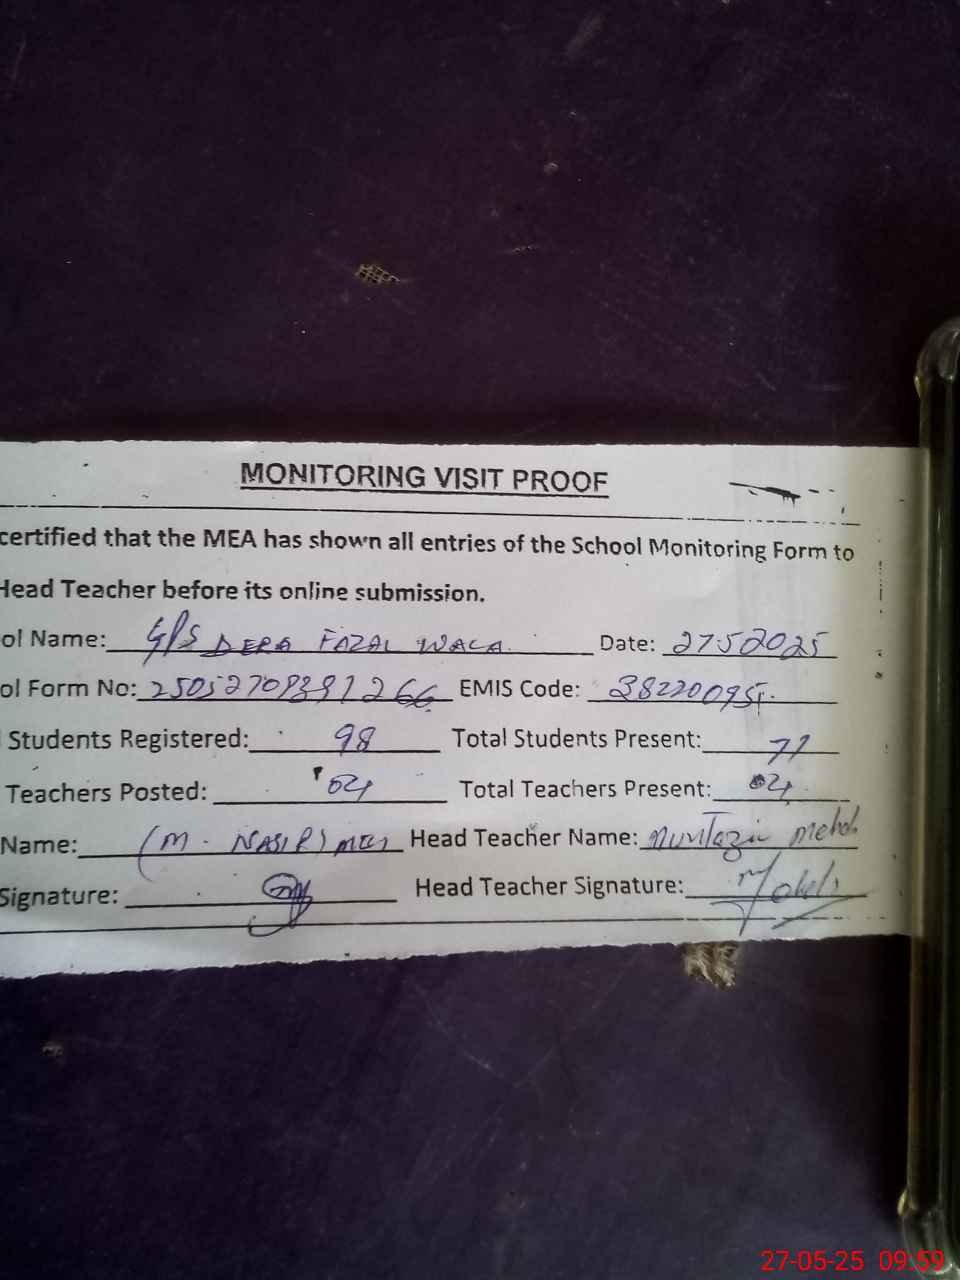 MONITORING VISIT PROOF
certified that the MEA has shown all entries of the School Monitoring Form to
Head Teacher before its online submission.
ol Name: G/S DERA FAZAL WALA Date: 27.5.2025
ol Form No: EMIS Code:
Students Registered: 98 Total Students Present: 71
Teachers Posted: 04 Total Teachers Present: 04
Name: (M. NASIR) Head Teacher Name:
Signature: Head Teacher Signature:
27-05-25 09:59